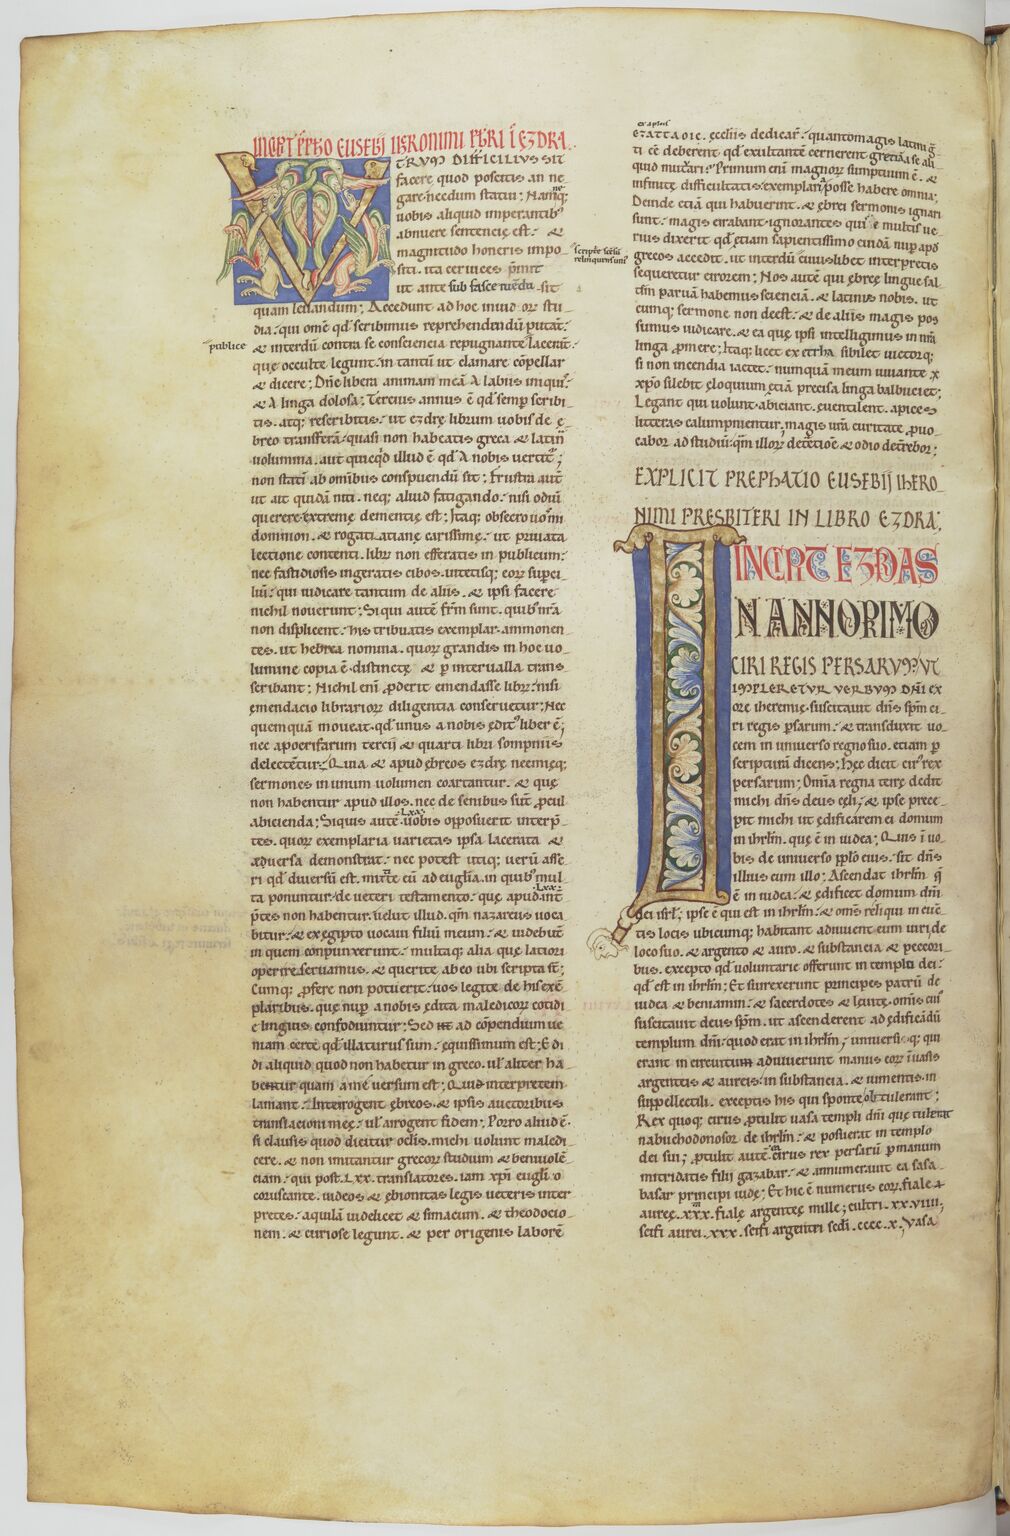 INCIPIT PREPHO EUSEBII IERONIMI PBRI I EZDRA
VTRUM DIFFICILIUS SIT
facere quod poscitis an ne
gare necdum statui; Namq;
uobis aliquid imperantib;
abnuere sentencię est. &
magnitudo honeris impo
siti. ita ceruices p̄mit
ut ante sub fasce ruendū sit
quam leuandum; Accedunt ad hoc inuidorꝝ stu
dia. qui om̄e qd scribimus reprehendendū putant.
publice
& interdū contra se consciencia repugnante lacerāt.
quę occulte legunt. in tantū ut clamare cōpellar
& dicere; Dn̄e libera animam meā A labiis iniquis.
& A linga dolosa; Tercius annus ē qd semp scribi
tis. atq; rescribitis. ut ezdrę librum uobis de ę
breo transferā. quasi non habeatis greca & latina
uolumina. aut quicqd illud ē qd A nobis uertit;
non statī ab omībus conspuendū sit; Frustra aut
ut ait quidā niti. neq; aliud fatigando. nisi odiū
querere extremę dementię est; Itaq; obsecro uos mi
domnion. & rogatiane carissime. ut priuata
lectione contenti. librꝝ non efferatis in publicum.
nec fastidiosis ingeratis cibos. uitetisq; eorꝝ superci
liū. qui iudicare tantum de aliis. & ipsi facere
nichil nouerunt; Si qui autē frm̄ sunt. quibus nr̄a
non displicent. his tribuatis exemplar. ammonen
tes. ut hebrea nomina. quorꝝ grandis in hoc uo
lumine copia ē. distinctę & p interualla trans
scribant; Nichil enī pderit emendasse librꝝ. nisi
emendacio librariorꝝ diligentia conseruetur; Nec
quemquā moueat. qd unus a nobis editus liber ē;
nec apocrifarum tercii & quarti libri sompniis
delectetur; Quia & apud ębreos ezdrę neemięq;
sermones in unum uolumen coartantur. & quę
non habentur apud illos. nec de senibus sunt pcul
abicienda; Siquis autē .Lxx. uobis opposuerit interp̄
tes. quorꝝ exemplaria uarietas ipsa lacerata &
aduersa demonstrat. nec potest utiq; uerū asse
ri qd diuersū est. mittite eū ad euglīa. in quibus mul
ta ponuntur de ueteri testamento. quę apud .Lxx. int̄
p̄tes non habentur. uelut illud. qm̄ nazareus uoca
bitur. & ex egipto uocaui filiū meum. & uidebunt
in quem conpunxerunt. multaq; alia quę latiori
operi reseruamus. & querite ab eo ubi scripta sunt;
Cumq; pferre non potuerit. uos legite de his exē
plaribus. quę nup a nobis ędita maledicorꝝ cotidi
e linguis confodiuntur; Sed ad cōpendium ue
niam. certe qd illaturus sum. ęquissimum est; Edi
di aliquid quod non habetur in greco. ul aliter ha
betur quam a me uersum est; Quid interpretem
laniant. Interrogent ębreos. & ipsis auctoribus
translacioni meę. ul arrogent fidem. Porro aliud ē.
si clausis quod dicitur oclis. michi uolunt maledi
cere. & non imitantur grecorꝝ studium & beniuolē
ciam. qui post .Lxx. translatores. iam xpī eugl̄io
coruscante. iudeos & ębionitas legis ueteris inter
pretes. aquilā uidelicet & simacum. & theodocio
nem. & curiose legunt. & per origenis laborē
scriptor sensū
relinquens
exaplois
EZATTAOIC. ęccl̄iis dedicarꝭ. quantomagis latini g̃
ti cē deberent. qd exultantē cernerent greciā a se ali
quid mutuari; Primum enī magnorꝝ sumptuum ē. &
infinitę difficultatis. exemplaria posse habere omnia;
Deinde etiā qui habuerint. & ębrei sermonis ignari
sunt. magis errabunt. ignorantes quis e multis ue
rius dixerit. qd etiam sapientissimo cuidā nup apd
grecos accedit. ut interdū cuiuslibet interpretis
sequeretur errorem; Nos autē qui ębreę lingue sal
tim paruā habemus scienciā. & latinus nobis. ut
cumq; sermone non deest. & de aliis magis pos
sumus iudicare. & ea quę ipsi intelligimus in nr̄a
linga pmere; Itaq; licet excetra sibilet uictorq;
si non incendia iactet. numquā meum iuuante x̄
xpo silebit ęloquium. etiā precisa linga balbuciet;
Legant qui uolunt. abiciant. euentilent apices
litteras calumpnientur, magis ur̄a caritate puo
cabor ad studiū. qm̄ illorꝝ detrectione & odio deterrebor;
EXPLICIT PREPHATIO EUSEBII IHERO
NIMI PRESBITERI IN LIBRO EZDRA;
INCIPT EZDRAS
IN ANNO PRIMO
CIRI REGIS PERSARUM; UT
IMPLERETUR VERBUM DNI EX
ore iheremię. suscitauit dn̄s spm̄ ci
ri regis psarum. & transduxit uo
cem in uniuerso regno suo. etiam p
scripturā dicens; Hęc dicit cirus rex
persarum; Omīa regna terrę dedit
michi dn̄s deus cęli. & ipse prece
pit michi ut ędificarem ei domum
in ihrlm̄. quę ē in iudea; Quis ī uo
bis de uniuerso pplo eius. sit dn̄s
illius cum illo; Ascendat ihrlm̄ q̄
ē in iudea. & ędificet domum dn̄i
dei isrl̄; ipse ē qui est in ihrlm̄. & om̄s reliqui in cunc
tis locis ubicumq; habitant adiuuent eum uiri de
loco suo. & argento & auro. & substancia & peccori
bus. excepto qd uoluntarie offerunt in templo dei.
qd est in ihrlm̄; Et surrexerunt principes patrū de
iudea & beniamin. & sacerdotes & leuitę. omīs cuius
suscitauit deus spm̄. ut ascenderent ad ędificandū
templum dn̄i. quod erat in ihrlm̄; uniuersiq; qui
erant in circuitu adiuuerunt manus eorꝝ ī uasis
argenteis & aureis. in substancia. & iumentis. in
suppellectili. exceptis his qui sponte obtulerant;
Rex quoq; cirus ptulit uasa templi dn̄i quę tulerat
nabuchodonosor de ihrlm̄. & posuerat in templo
dei sui; ptulit autē ea cirus rex persarū p manum
mitridatis filii gazabar. & annumerauit ea sasa
basar principi iudę; Et hic ē numerus eorꝝ. fiale
aureę .xxx. fialę argenteę mille; cultri .xx.viiii.
scifi aurei .xxx. scifi argentei scdi .cccc.x. Vasa